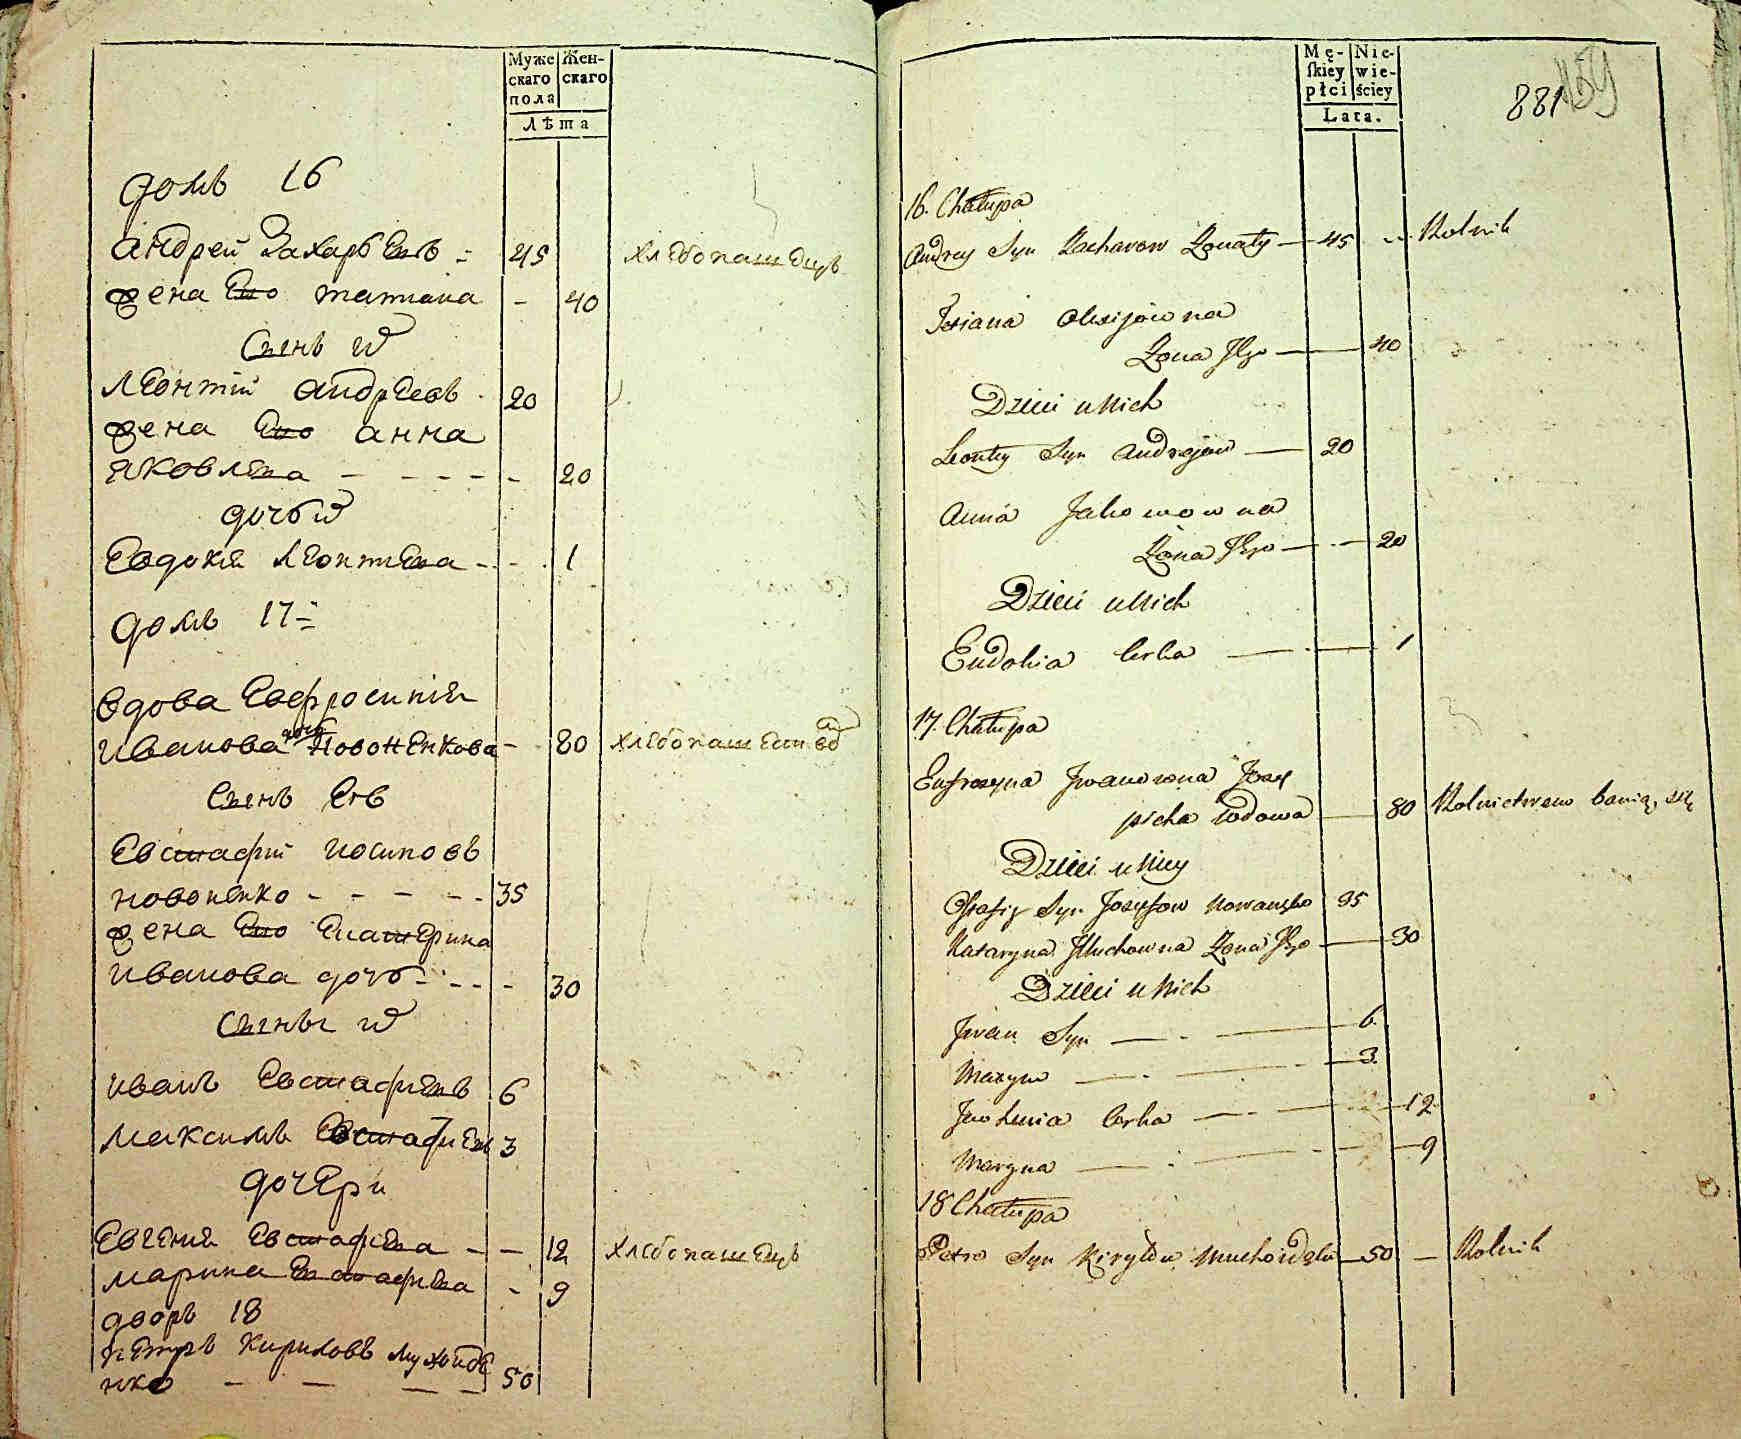 Муже
скаго
пола
Жен-
скаго
Лѣта
домъ 16
Андрей Захарьевъ 45 хлебопашецъ
жена Его татиана - 40
Сынъ их
Леонтий андреевъ 20
жена Его анна
яковлева - - - - - 20
дочь их
Евдокия леонтиева - - 1
домъ 17
вдова Евфросиния
иванова дочь Новоненкова - 80 хлебопашеств
Сынъ Ея
Евстафий иосиповъ
новоненко - - - - - 35
жена Его Екатерина
иванова дочь - - - 30
Сыны их
иванъ Евстафиевъ 6
максимъ Евстафиев 3
дочери
Евгения Евстафиева - - 12 хлебопашецъ
марина Евстафиева - 9
дворъ 18
петръ кириловъ мухоиде
нко - - - - 50
Mę-
skiey
płci
Nie-
wie-
ściey
Lata.
881
16. Chałupa
Andrey Syn Zacharow — 45 Rolnik
Tetiana Olexijowna
Żona Jego — 40
Dzieci u Nich
Leonty Syn Andrejow — 20
Anna Jakowowna
Żona Jego — 20
Dzieci u Nich
Eudokia Corka — 1
17. Chałupa
Eufrozyna Jwanowna Jozy
picha Wdowa — 80 Rolnictwem bawią, się
Dzieci u Niey
Ostafiy Syn Jozyfow Nowanenko 35
Kataryna Żona Jego — 30
Dzieci u Nich
Jwan Syn — 6
Maxym — 3
Jewhenia Corka — 12
Maryna — 9
18 Chałupa
Petro Syn Kiryłow Muchoidenko — 50 — Rolnik